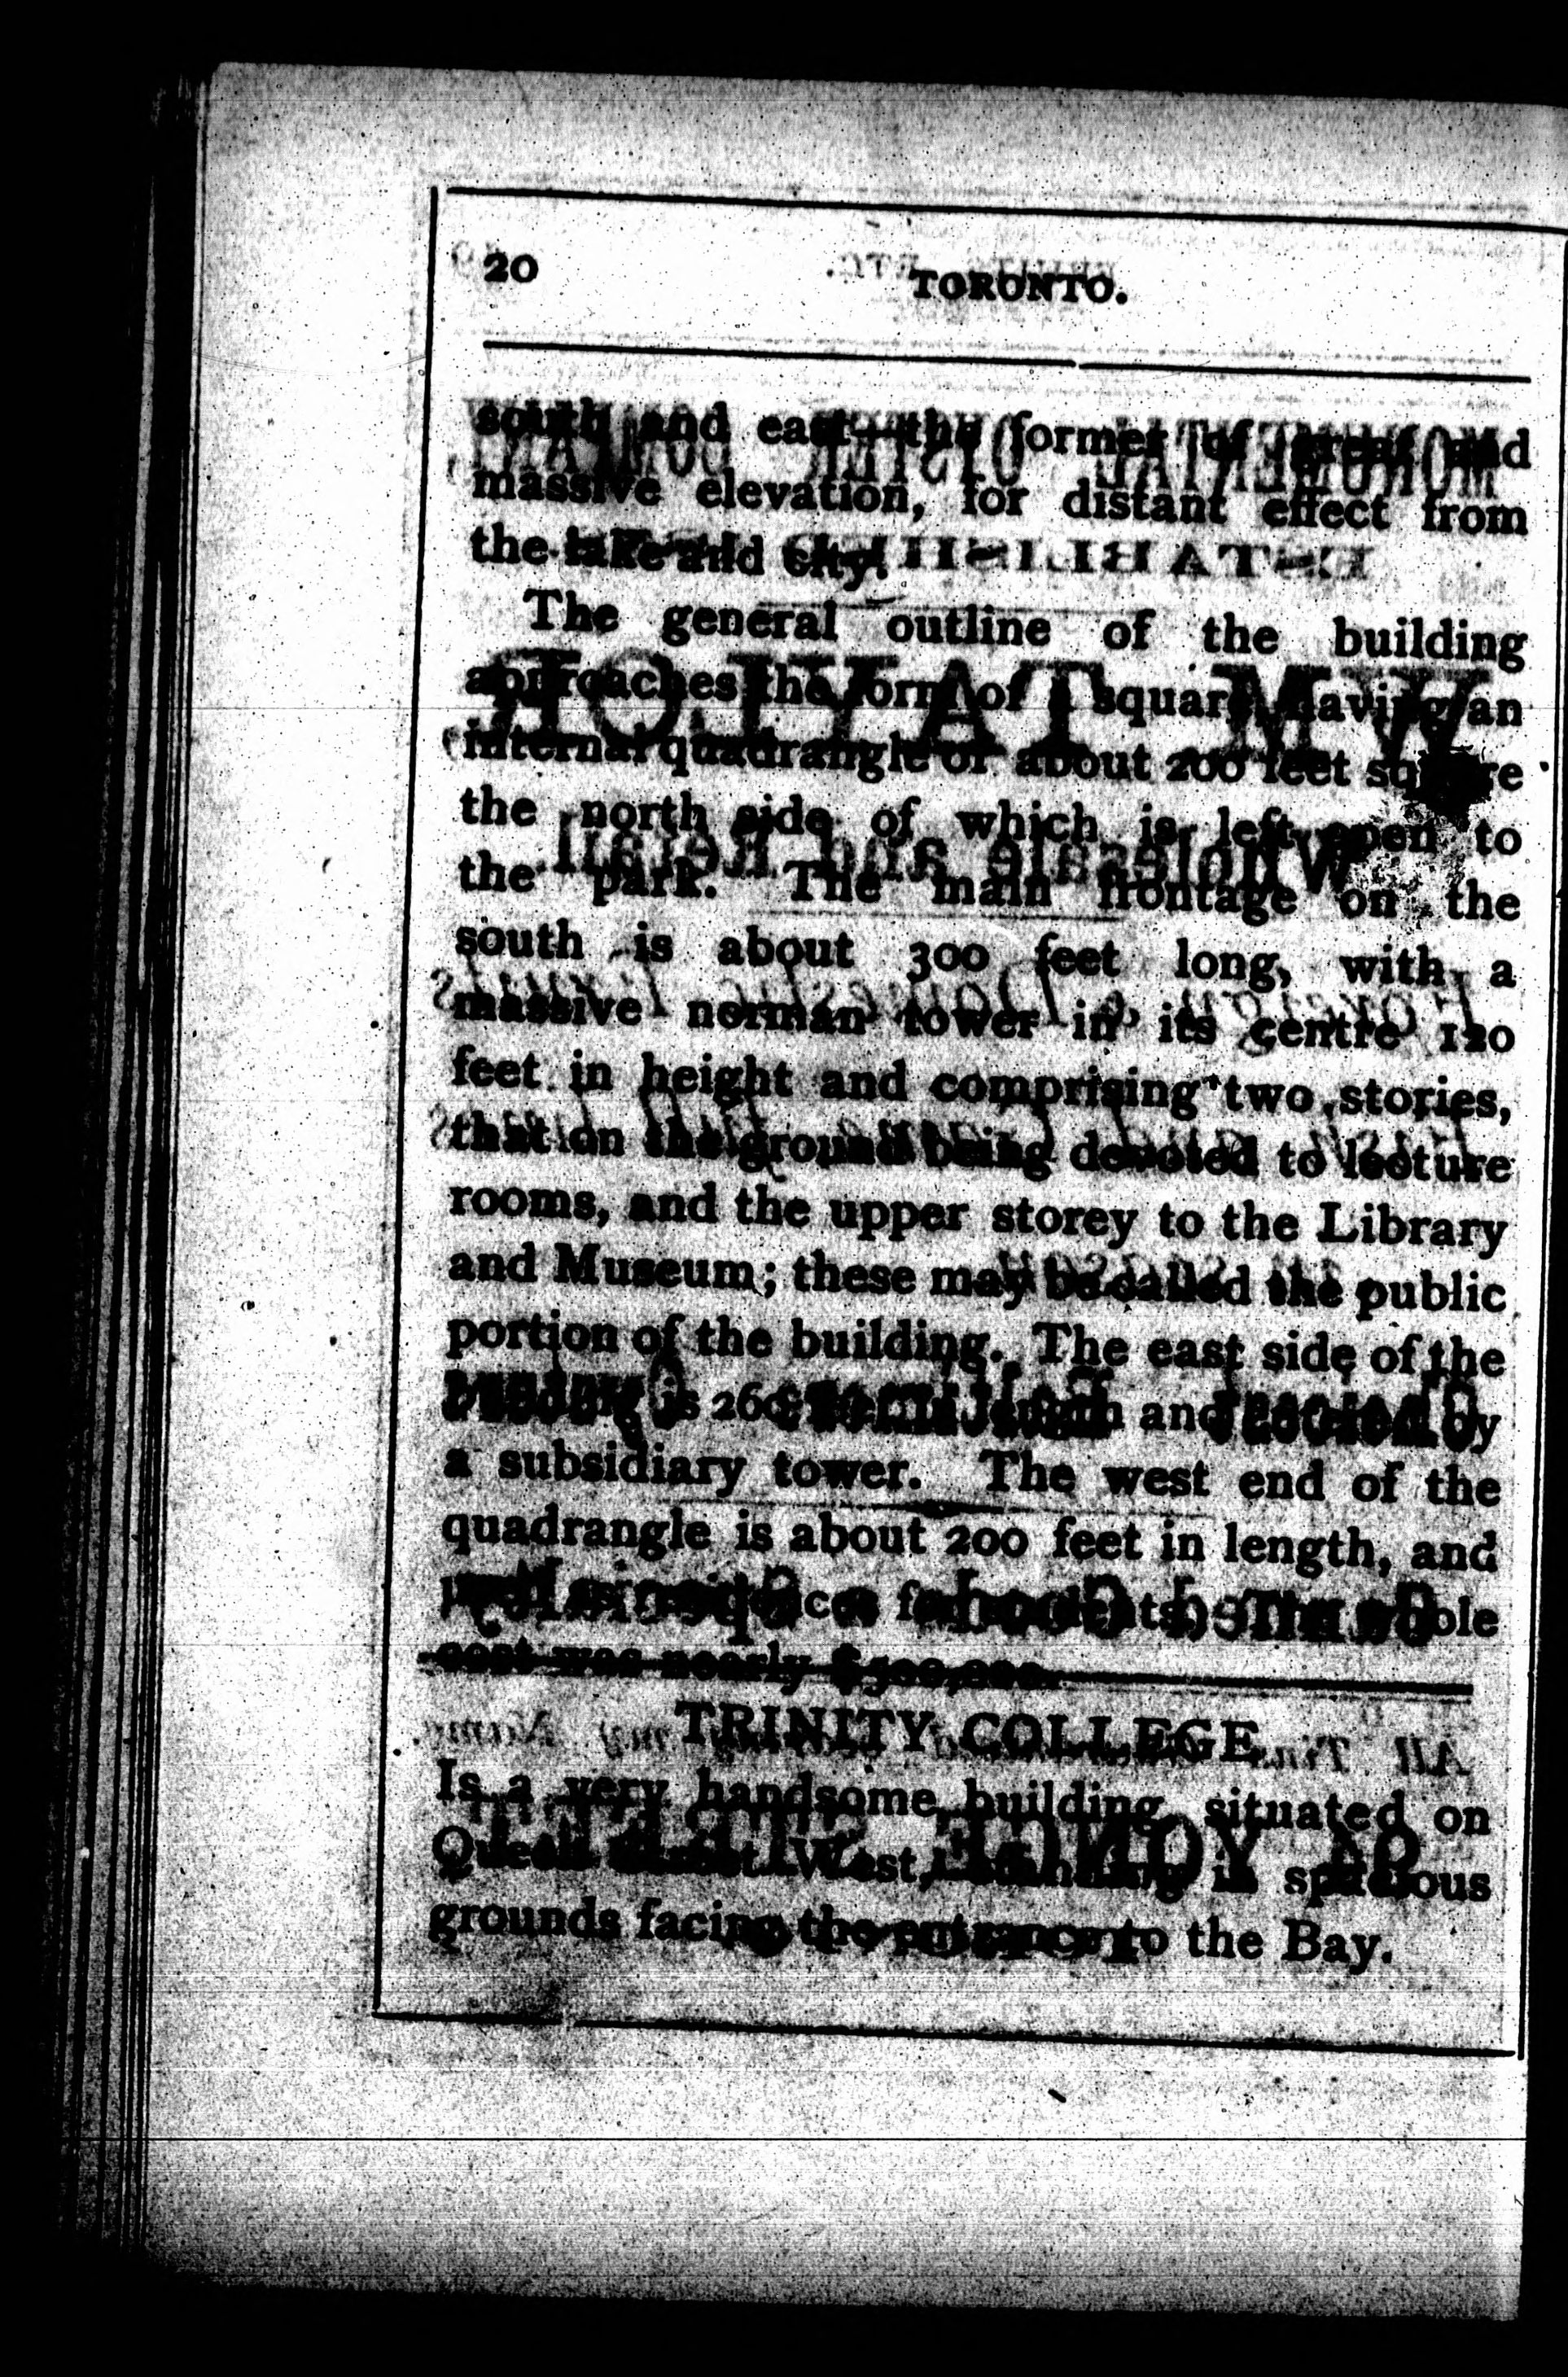 20
TORONTO.
south and east—the former of great and
massive elevation, for distant effect from
the lake and city.
The general outline of the building
approaches the form of a square, having an
internal quadrangle of about 200 feet square
the north side of which is left open to
the park. The main frontage on the
south is about 300 feet long, with a
massive norman tower in its centre 120
feet in height and comprising two stories,
that on the ground being devoted to lecture
rooms, and the upper storey to the Library
and Museum; these may be called the public
portion of the building. The east side of the
building is 260 feet in length and by
a subsidiary tower. The west end of the
quadrangle is about 200 feet in length, and
used as residences for students. The whole
cost was nearly
TRINITY COLLEGE
Is a very handsome building situated on
Queen Street West, standing in spacious
grounds facing the entrance to the Bay.